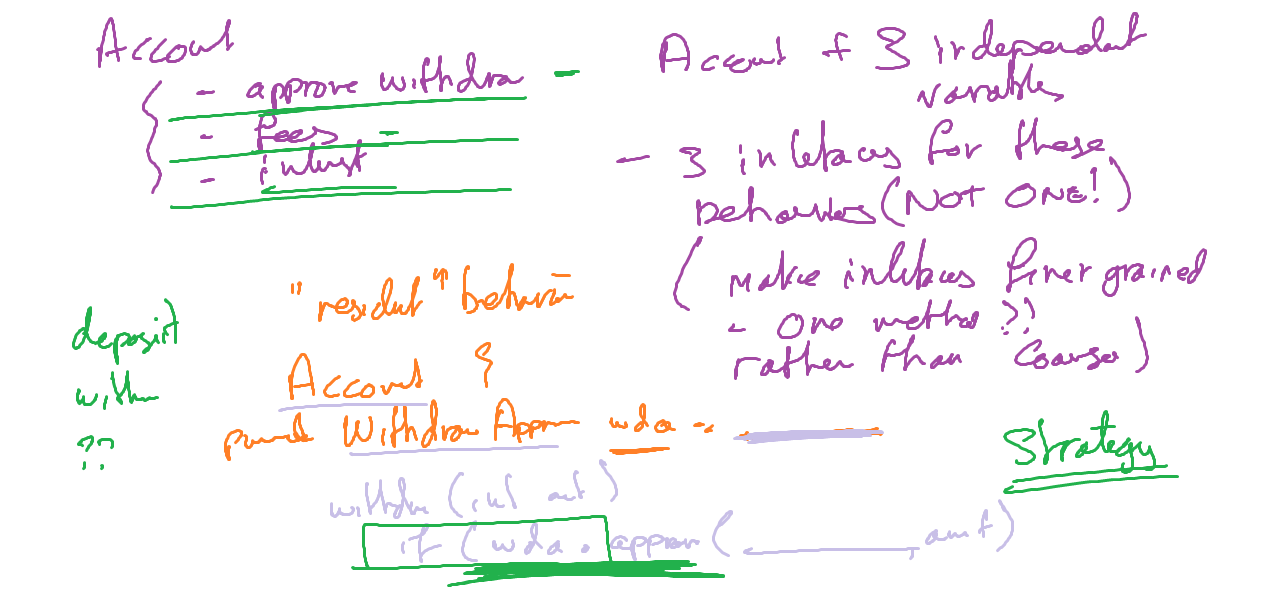 Account
- approve withdraw -
- fees -
- interest
Account + 3 independent
variables
- 3 interfaces for these
behaviors (NOT ONE!)
( Make interfaces finer grained
- one method ??
rather than coarse )
"resident" behavior
deposit
with
??
Account {
private Withdraw Approve wda =
Strategy
withdraw (int amt)
if ( wda . approve ( , amt )